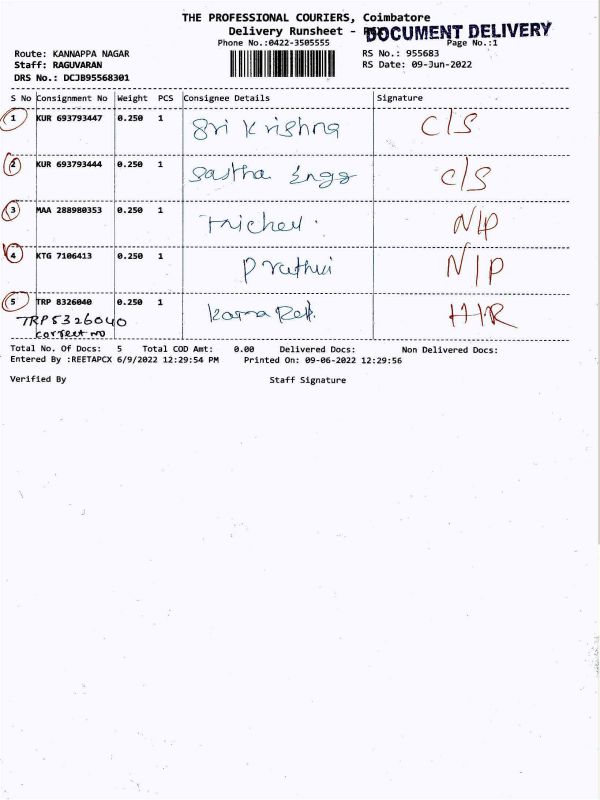 THE PROFESSIONAL COURIERS, Coimbatore
Delivery Runsheet -
DOCUMENT DELIVERY
Phone No.:0422-3505555
Page No.:1
Route: KANNAPPA NAGAR
RS No.: 955683
Staff: RAGUVARAN
RS Date: 09-Jun-2022
DRS No.: DCJB95568301
S No Consignment No Weight PCS Consignee Details Signature
1 KUR 693793447 0.250 1 Sri Krishna C/S
2 KUR 693793444 0.250 1 Sastha Engg C/S
3 MAA 288980353 0.250 1 N/P
4 KTG 7106413 0.250 1 N/P
5 TRP 8326040 0.250 1
TRP5326040
correct no
Total No. Of Docs: 5 Total COD Amt: 0.00 Delivered Docs: Non Delivered Docs:
Entered By :REETAPCX 6/9/2022 12:29:54 PM Printed On: 09-06-2022 12:29:56
Verified By Staff Signature